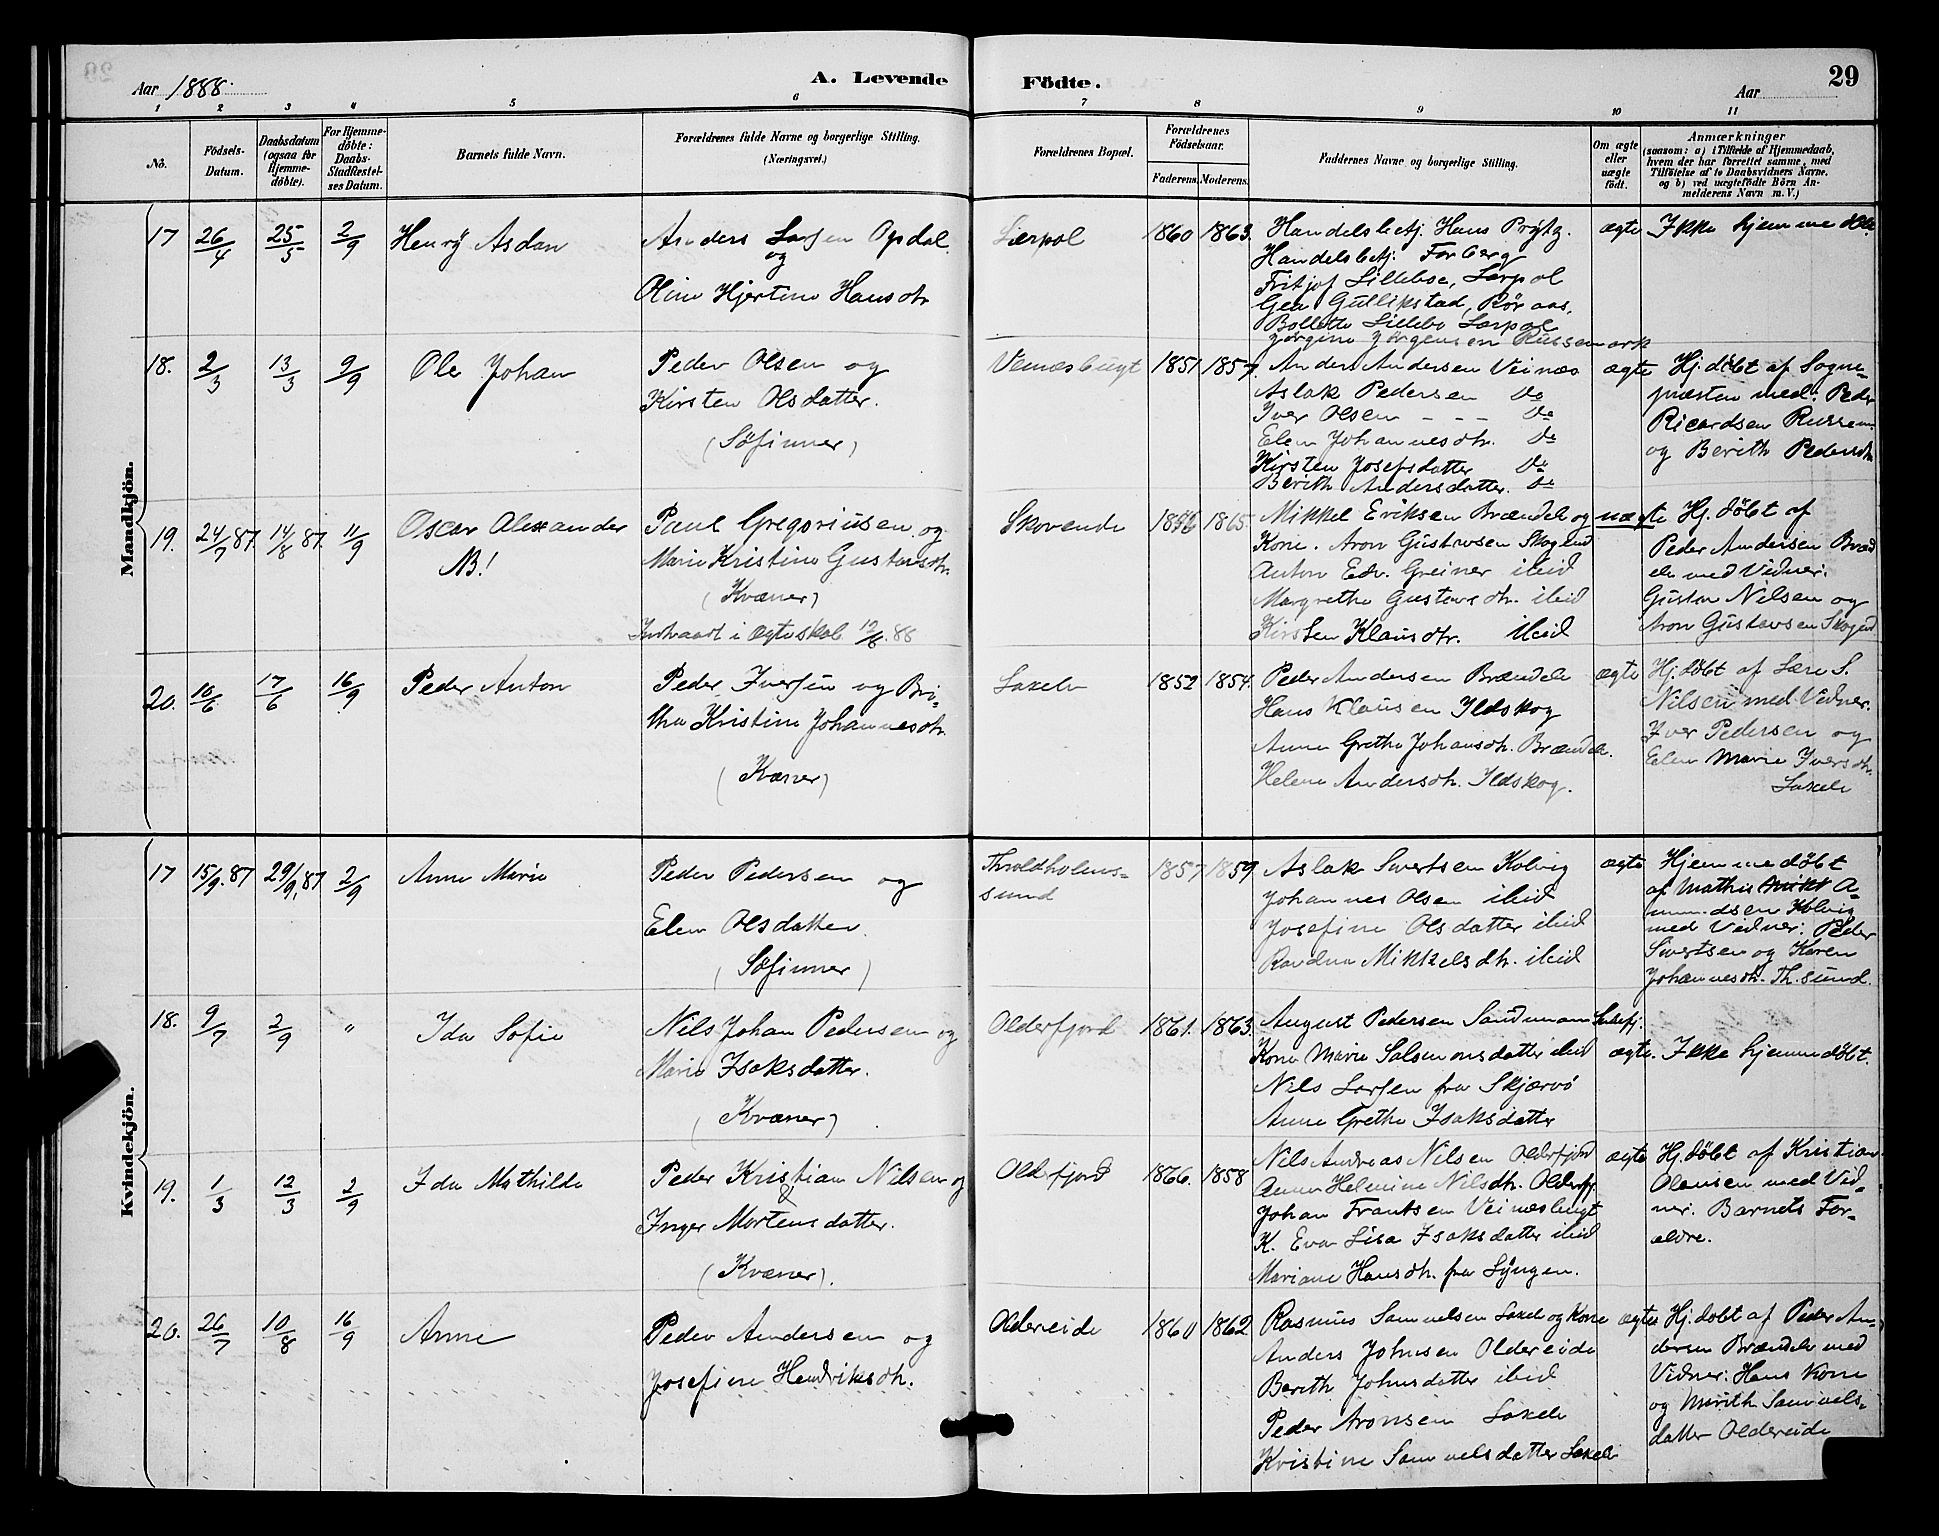 Aar 1888.
A. Levende Födte.
29
Aar
1 2 3 4 5 6 7 8 9 10 11
No.
Födsels-Datum.
Daabsdatum (ogsaa for Hjemme-döbte).
For Hjemme-döbte: Daabs-Stadfæstel-ses Datum.
Barnets fulde Navn.
Forældrenes fulde Navne og borgerlige Stilling. (Næringsvei.)
Forældrenes Bopæl.
Forældrenes Födselsaar.
Faderens. Moderens.
Faddernes Navne og borgerlige Stilling.
Om ægte eller uægte födt.
Anmærkninger
(saasom: a) i Tilfælde af Hjemmedaab,
hvem der har forrettet samme, med
Tilföielse af to Daabsvidners Navne,
og b) ved uægtefödte Börn An-
melderens Navn m. V.)
Mandkjön.
17 26/4 25/5 2/9 Henrÿ Asdan
Anders Larsen Opdal
og
Oline Hjertine Hansdtr
Lærpol 1860 1863.
Handelsbetj. Hans Prÿtz.
Handelsbetj. Forberg
Fritjof Lillebo, Lærpol
Gullikstad, Röraas.
Bollette Lillebo Lærpol
Jörgine Jörgensen Russemark
ægte Ikke hjemmedöbt
18. 2/3 13/3 9/9 Ole Johan
Peder Olsen og
Kirsten Olsdatter.
(Söfinner)
Veinæsbugt 1851 1857.
Anders Andersen Veinæs
Aslak Pedersen Do
Iver Olsen - - - Do
Elen Johannesdtr. Do
Kirsten Josefsdatter Do
Berith Andersdatter. Do
ægte Hj. döbt af Sogne-
præsten med: Peder
Ricardsen Russem.
og Berith Pedersdtr
19. 24/7 87. 14/8 87. 11/9 Oscar Alexander
NB!
Paul Gregoriusen og
Marie Kristine Gustavsdtr.
(Kvæner)
Indtraadt i Ægteskab 12/8. 88
Skovende 1856 1865.
Mikkel Eriksen Brændele og
Kone. Aron Gustavsen Skogend
Anton Edv. Greiner ibid
Margrethe Gustavsdtr. ibid
Kirsten Klausdtr. ibid
uægte Hj. döbt af
Peder Andersen Bræd
ele med Vidner:
Gustav Nilsen og
Aron Gustavsen Skogend
20. 10/6 17/6 16/9 Peder Anton
Peder Iversen og Bri-
tha Kristine Johannesdtr.
(Kvæner)
Laxelv 1852 1854.
Peder Andersen Brændele
Hans Klausen Ildskog
Anne Grethe Johansdtr. Brændele.
Helene Andersdtr. Ildskog.
ægte Hj. döbt af Lære S.
Nilsen med Vidner.
Iver Pedersen og
Elen Marie Iversdtr.
Laxelv
Kvindekjön.
17 15/9. 87 29/9. 87 2/9 Anne Marie
Peder Pedersen og
Elen Olsdatter.
(Söfinner)
Throldholmens-
sund
1857 1859
Aslak Sivertsen Kolvig
Johannes Olsen ibid
Josefine Olsdatter ibid
Ravdna Mikkelsdtr. ibid
ægte Hjemmedöbt
af Mathis A-
mundsen Kolvig
med Vidner: Peder
Sivertsen og Karen
Johannesdtr. Th. sund.
18. 9/7 2/9 " Ida Sofie
Nils Johan Pedersen og
Marie Isaksdatter.
(Kvæner)
Olderfjord 1861. 1863.
August Pedersen Sandman
Kone Marie Salomonsdatter ibid
Nils Larsen fra Skjærvö
Anne Grethe Isaksdatter
ægte. Ikke hjemmedöbt.
19. 1/3 12/3 2/9 Ida Mathilde
Peder Kristian Nilsen og
Inger Mortensdatter.
(Kvæner).
Olderfjord 1866. 1858
Nils Andreas Nilsen Olderfjord
Anne Helmine Nilsdtr. Olderfj.
Johan Frantsen Veinæsbugt
K. Eva Lisa Isaksdatter ibid
Mariane Hansdtr. fra Lÿngen.
ægte Hj. döbt af Kristian
Olausen med Vid-
ner: Barnets For-
ældre.
20. 26/7 10/8 16/9 Anne
Peder Andersen og
Josefine Hendriksdtr.
Oldereide 1860 1862
Rasmus Samuelsen Laxelv og Kone
Anders Johnsen Oldereide
Berith Johnsdatter ibid
Peder Aronsen Laxelv
Kristine Samuelsdatter Laxelv
ægte Hj. döbt af Peder An-
dersen Brændele med
Vidner: Hans Kone
og Marith Samuels-
datter Oldereide